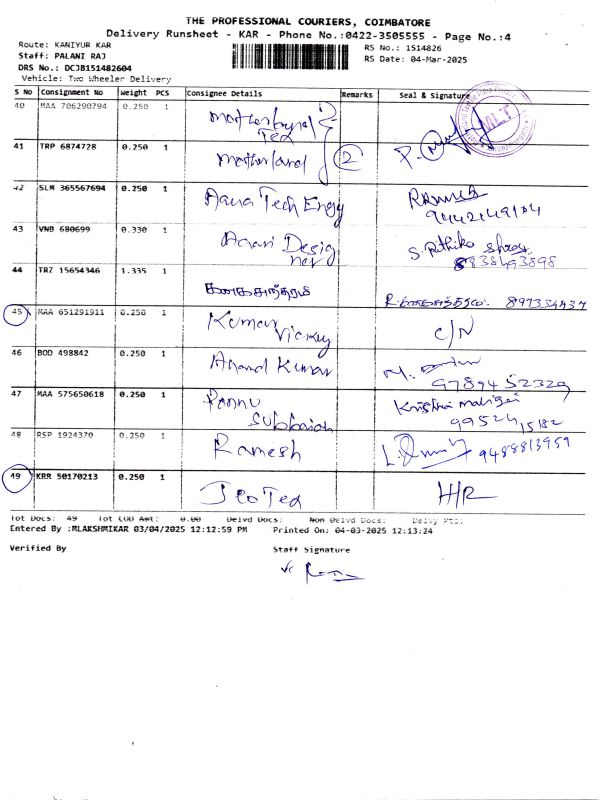 THE PROFESSIONAL COURIERS, COIMBATORE
Delivery Runsheet - KAR - Phone No.:0422-3505555 - Page No.:4
Route: KANIYUR KAR
RS No.: 1514826
Staff: PALANI RAJ
RS Date: 04-Mar-2025
DRS No.: DCJB151482604
Vehicle: Two Wheeler Delivery
S No Consignment No Weight PCS Consignee Details Remarks Seal & Signature
40 MAA 706290794 0.250 1
Tex
41 TRP 6874728 0.250 1 Motherland 2
42 SLM 365567694 0.250 1 Aana Tech Engg
9442149104
43 VNB 680699 0.330 1 Aaravi Design
8838493898
44 TRZ 15654346 1.335 1 கனகசுந்தரம்
45 MAA 651291911 0.250 1 Kumar Vickey C/N
46 BOD 498842 0.250 1 Anand Kumar
9789452329
47 MAA 575650618 0.250 1 Ponnu Subbaiah
9952415182
48 RSP 1924370 0.250 1 Ramesh 9488813959
49 KRR 50170213 0.250 1 Jeo Tex H/R
Tot Docs: 49 Tot COD Amt: 0.00 Delvd Docs: Non Delvd Docs: Delvy Pts:
Entered By :MLAKSHMIKAR 03/04/2025 12:12:59 PM Printed On: 04-03-2025 12:13:24
Verified By Staff Signature